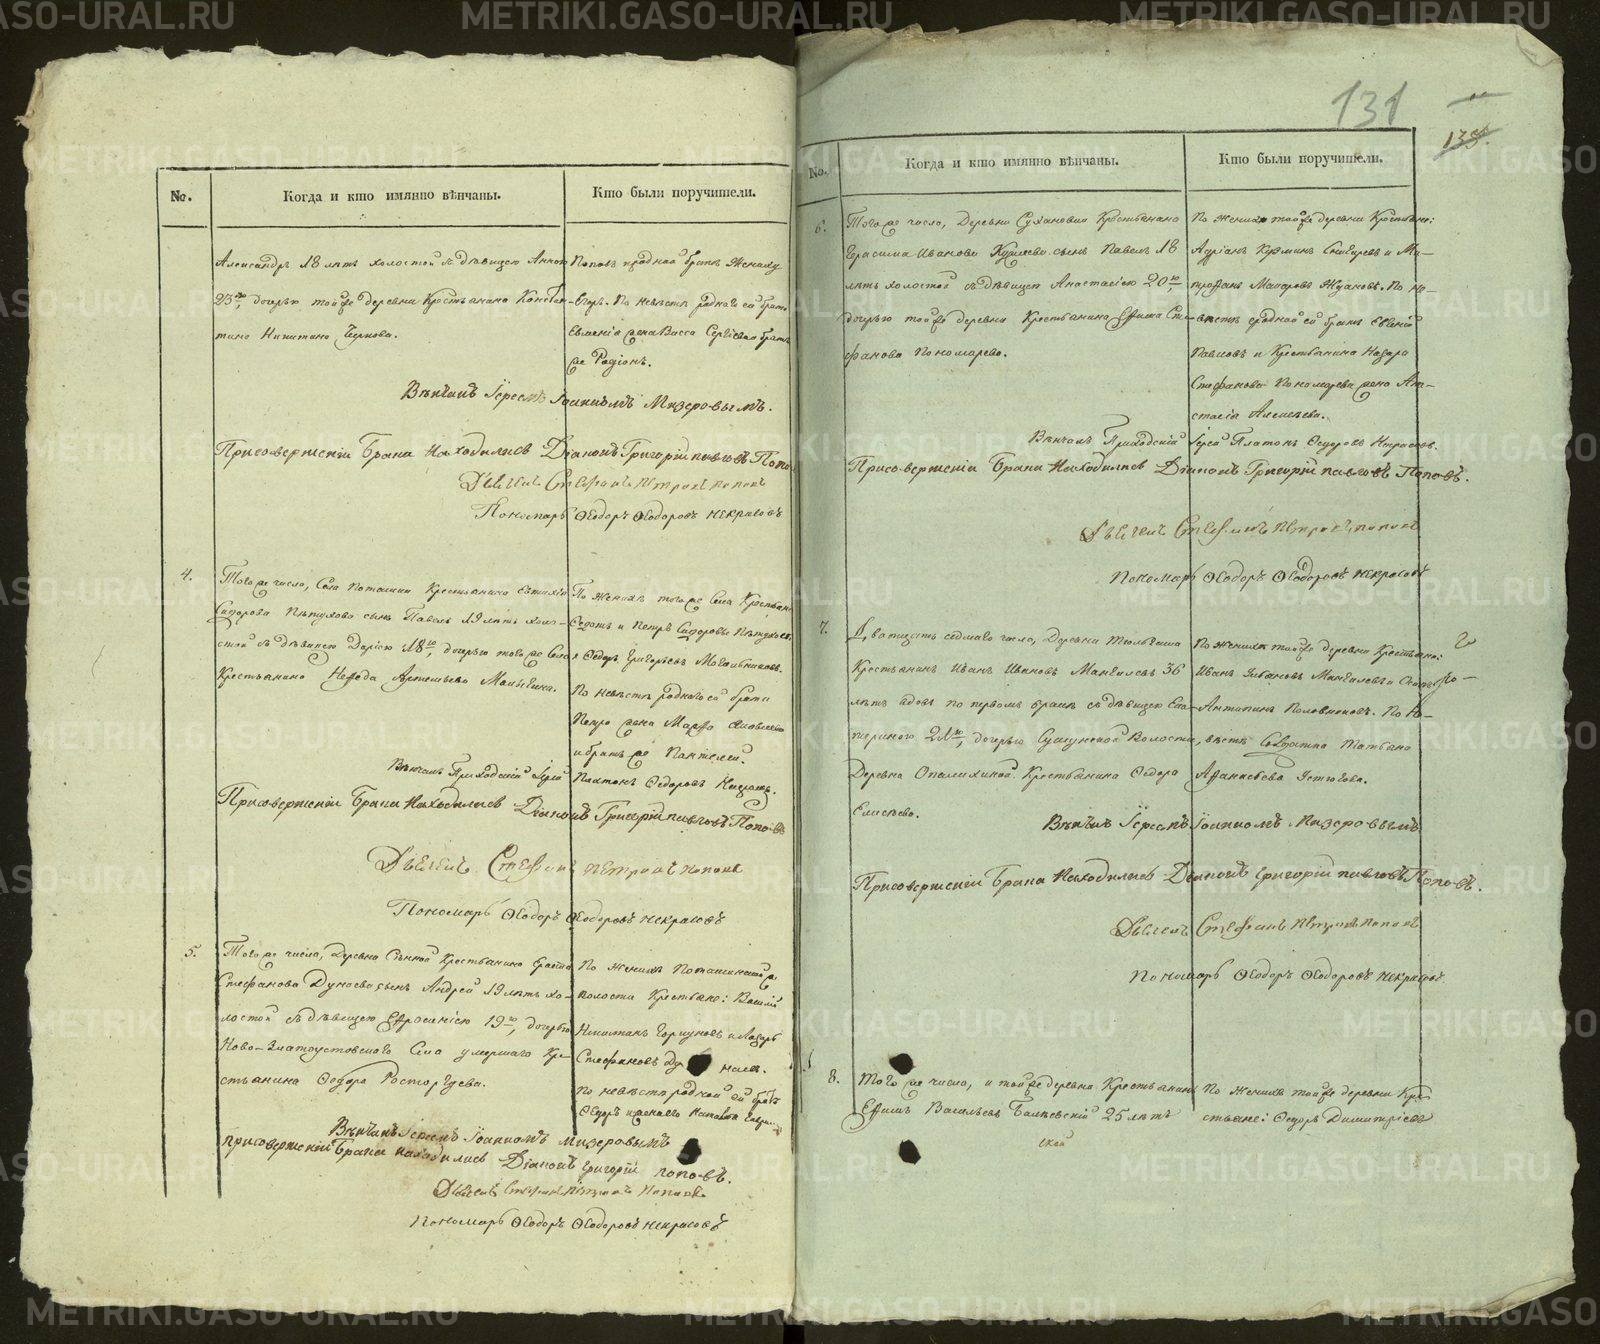 №.
Когда и кто имянно вѣнчаны.
Кто были поручители.
Александръ 18 лѣтъ холостой съ дѣвицею Анною
23хъ, дочерью той же деревни Крестьянина Констан-
тина Никитина
Поповъ родной братъ Жениху
Егоръ. По невѣстѣ роднаго ея брата
жена Васса Сергѣева братъ
же Родіонъ.
Вѣнчанъ Іереемъ Іоанномъ Мизеровымъ.
При совершеніи Брака Находились Діаконъ Григорій Павловъ Попо
Дьячекъ Стефанъ Петровъ Поповъ
Пономарь Ѳеодоръ Ѳеодоровъ Некрасовъ
4.
Того же числа, Села Поташки Крестьянина
Сидорова Пѣтухова сынъ Павелъ 19 лѣтъ холо-
стой съ дѣвицею Дарьею 18ю, дочерью того же Села
Крестьянина Нефеда Артемьева Малыгина.
По Женихѣ того же Села Крестьяне
Федотъ и Петръ Сидоровы Пѣтуховы
Ѳедоръ Григорьевъ
По невѣстѣ роднаго ея брата
Петра жена Марфа Яковлева
и братъ же Пантелей.
Вѣнчалъ Приходскій Іерей Платонъ Ѳедоровъ Некрасовъ.
При совершеніи Брака Находились Діаконъ Григорій Павловъ Поповъ
Дьячекъ Стефанъ Петровъ Поповъ
Пономарь Ѳеодоръ Ѳеодоровъ Некрасовъ
5.
Того же числа, Деревни Сѣнной Крестьянина
Стефанова Дунаева сынъ Андрей 19 лѣтъ хо-
лостой съ дѣвицею Ефросиніею 19ю, дочерью
Ново-Златоустовскаго Села умершаго Кре-
стьянина Ѳедора Расторгуева.
По Женихѣ Поташинской же
волости Крестьяне: Василій
Горшуновъ и Лазарь
Стефановъ
По невѣстѣ родной ей братъ
Ѳедоръ
Вѣнчанъ Іереемъ Іоанномъ Мизеровымъ
При совершеніи Брака находились Діаконъ Григорій Поповъ.
Дьячекъ Стефанъ Петровъ Поповъ
Пономарь Ѳеодоръ Ѳеодоровъ Некрасовъ
131
135.
No.
Когда и кто имянно вѣнчаны.
Кто были поручители.
6.
Того же числа, Деревни Сухановки Крестьянина
Герасима Иванова сынъ Павелъ 18
лѣтъ холостой съ дѣвицею Анастасіею 20ю
дочерью той же деревни Крестьянина Ефима Сте-
фанова Пономарева.
По Женихѣ той же деревни Крестьяне:
Адріанъ Кузминъ Снигиревъ и Ми-
трофанъ Макаровъ Жудановъ. По не-
вѣстѣ родной ей братъ Евгеній
Павловъ и Крестьянина Назара
Стефанова Пономарева жена Ана-
стасія Алексѣева.
Вѣнчалъ Приходскій Іерей Платонъ Ѳедоровъ Некрасовъ.
При совершеніи Брака Находились Діаконъ Григорій Павловъ Поповъ.
Дьячекъ Стефанъ Петровъ Поповъ
Пономарь Ѳеодоръ Ѳеодоровъ Некрасовъ
7.
Дватцать седмаго числа, Деревни
Крестьянинъ Иванъ Ивановъ Мангилевъ 36
лѣтъ вдовъ по первомъ бракѣ съ дѣвицею Ека-
териною 21ю, дочерью Сажинской Волости,
Деревни Опалихиной Крестьянина Ѳедора
Елисѣева.
По Женихѣ той же деревни Крестьяне:
Иванъ Мангилевъ и
Антипинъ Половниковъ. По не-
вѣстѣ Солдатка Татьяна
Афанасьева Устюгова.
Вѣнчанъ Іереемъ Іоанномъ Мизеровымъ
При совершеніи Брака Находились Діаконъ Григорій Павловъ Поповъ.
Дьячекъ Стефанъ Петровъ Поповъ
Пономарь Ѳеодоръ Ѳеодоровъ Некрасовъ
8.
Того же числа, и той же деревни Крестьянинъ
Ефимъ Васильевъ 25 лѣтъ
По Женихѣ той же деревни Кре-
стьяне: Ѳедоръ Димитріевъ
METRIKI.GASO-URAL.RU